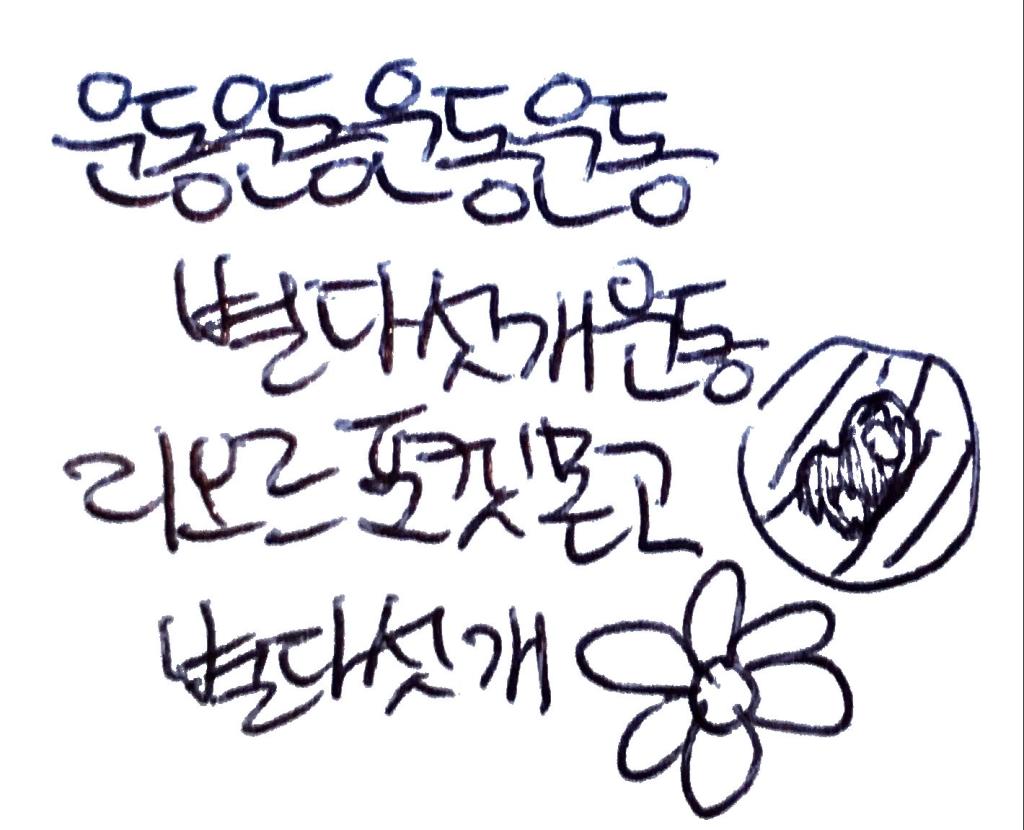 운동운동운동운동
별다섯개운동
리오르포켓몬고
별다섯개